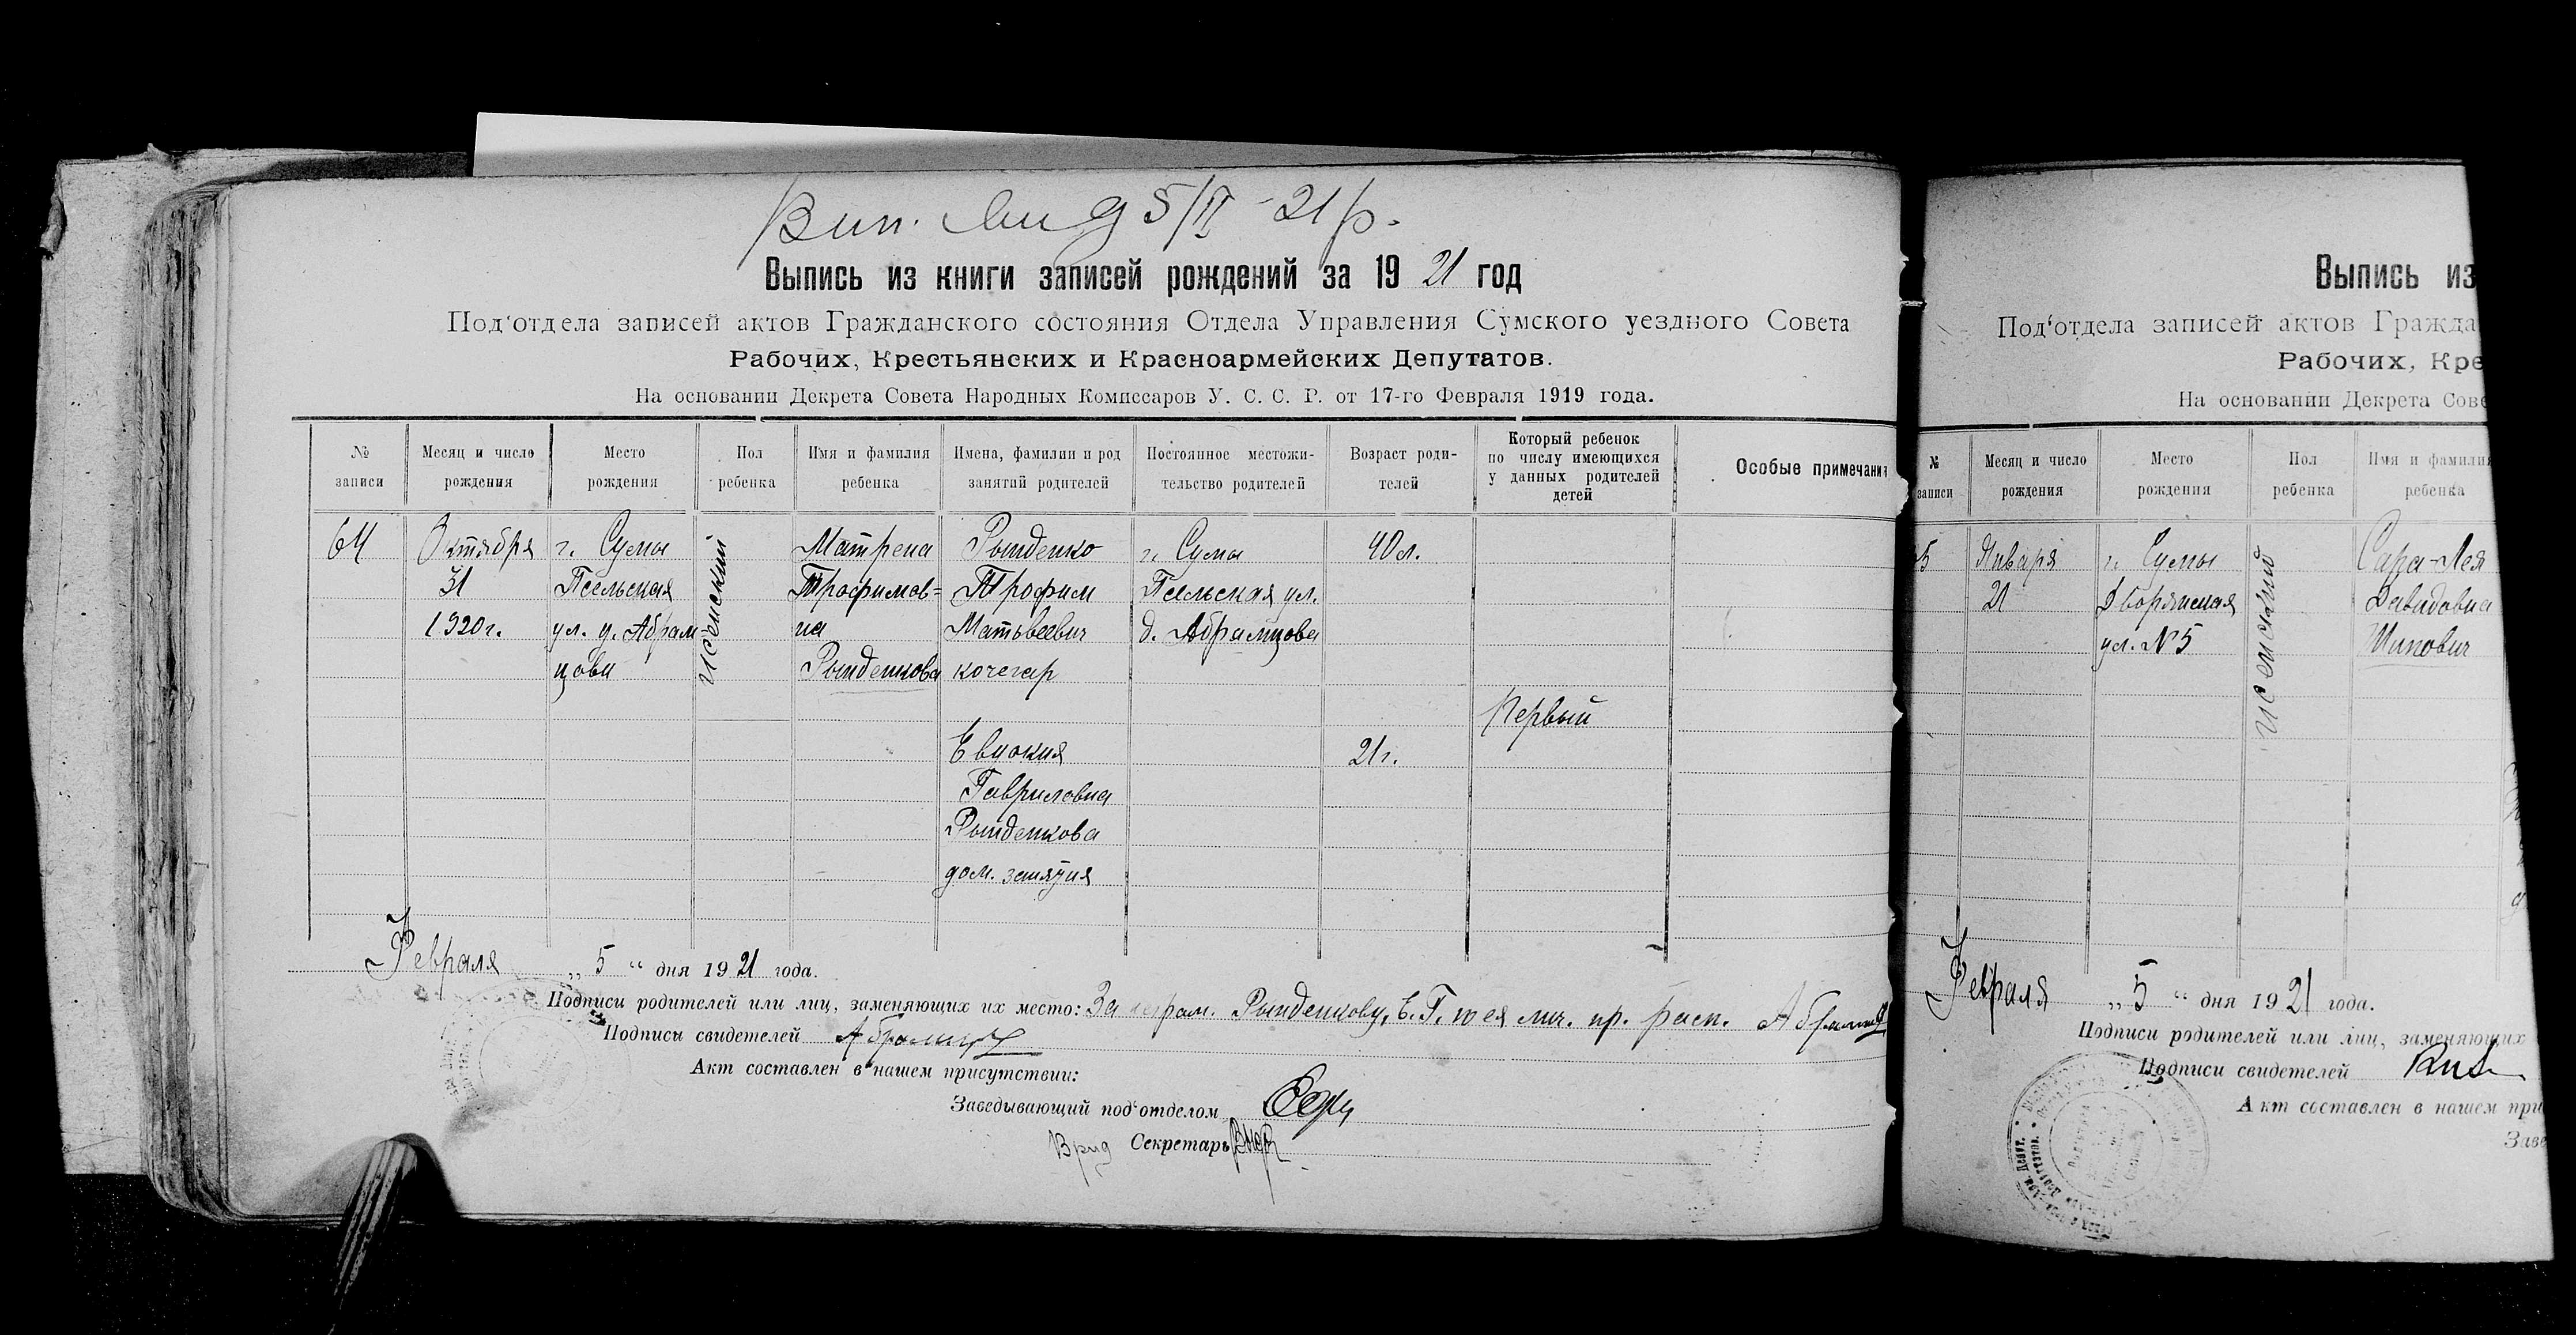 Вип. 5/II - 21 р.
Выпись из книги записей рождений за 1921 год
Под‘отдела записей актов Гражданского состояния Отдела Управления Сумского уездного Совета
Рабочих, Крестьянских и Красноармейских Депутатов.
На основании Декрета Совета Народных Комиссаров У. С. С. Р. от 17-го Февраля 1919 года.
№ записи
Месяц и число рождения
Место рождения
Пол ребенка
Имя и фамилия ребенка
Имена, фамилии и род занятий родителей
Постоянное местожительство родителей
Возраст родителей
Который ребенок по числу имеющихся у данных родителей детей
Особые примечания
64
Октября
31
1920 г.
г. Сумы
Псельская
ул. д. Абрам
цова
женский
Матрена
Трофимов=
на
Рынденкова
Рынденко
Трофим
Матвеевич
кочегар
Евдокия
Гавриловна
Рынденкова
дом. занятия
г. Сумы
Псельская ул.
д. Абрамцова
40 л.
21 г.
Первый
Февраля „ 5 “ дня 1921 года.
Подписи родителей или лиц, заменяющих их место: За неграм. Рынденкову, Е. Г. по ея лич. пр. расп.
Подписи свидетелей
Акт составлен в нашем присутствии:
Заведывающий под‘отделом
Врид Секретарь
Выпись из
Под‘отдела записей актов Гражда
Рабочих, Кре
На основании Декрета Сове
№ записи
Месяц и число рождения
Место рождения
Пол ребенка
Имя и фамилия ребенка
5
Января
21
г. Сумы
Дворянская
ул. № 5
женский
Сара-Лея
Давидовна
Февраля „ 5 “ дня 1921 года.
Подписи родителей или лиц, заменяющих
Подписи свидетелей
Акт составлен в нашем при
Заве